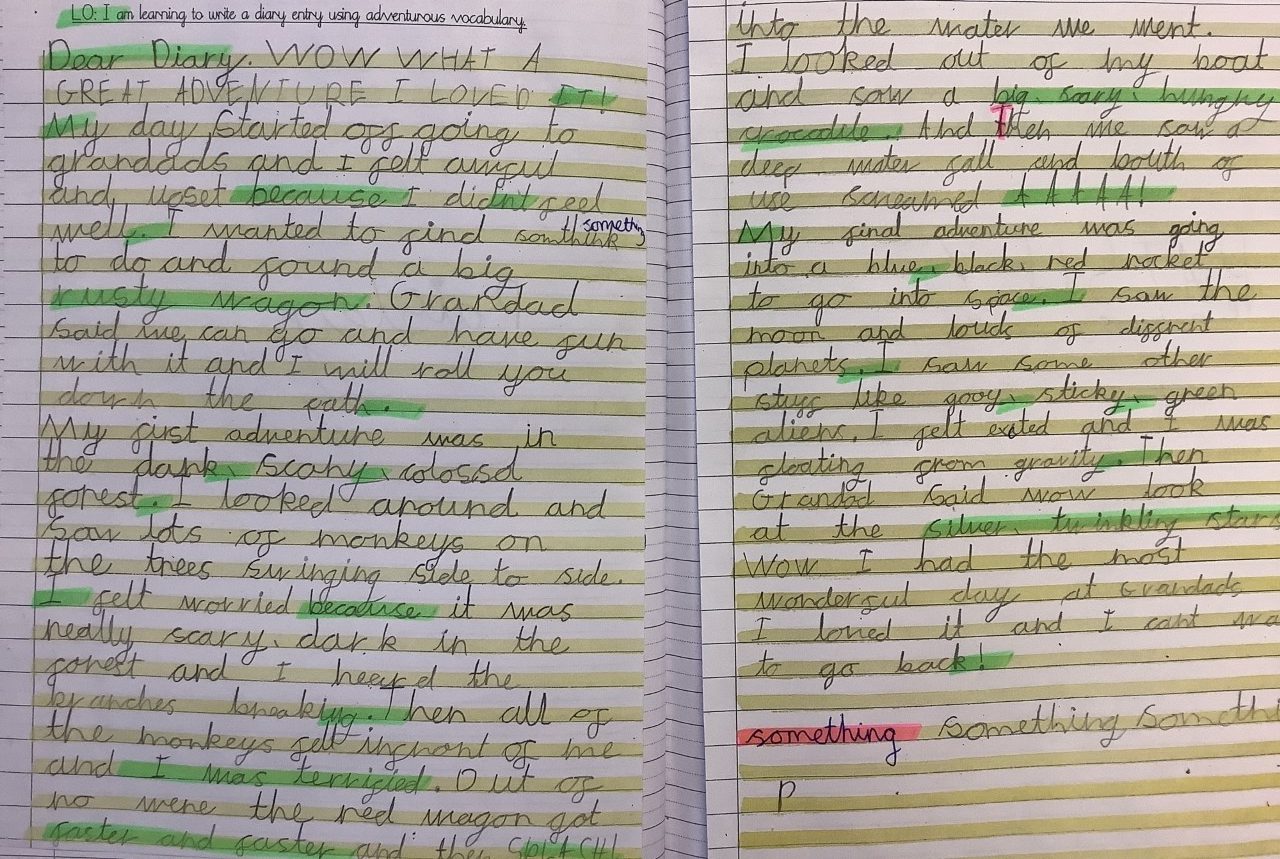 LO: I am learning to write a diary entry using adventurous vocabulary.
Dear Diary. WOW WHAT A
GREAT ADVENTURE I LOVED IT!
My day started off going to
grandads and I felt awful
and upset because I didn't feel
well. I wanted to find somthink something
to do and found a big
rusty wagon. Grandad
said we can go and have fun
with it and I will roll you
down the path.
My first adventure was in
the dark, scary, colossal
forest. I looked around and
saw lots of monkeys on
the trees swinging side to side.
I felt worried because it was
really scary, dark in the
forest and I heerd the
branches breaking. Then all of
the monkeys fell infront of me
and I was terrified. Out of
no were the red wagon got
faster and faster and then SPLASH!
into the water we went.
I looked out of my boat
and saw a big, scary, hungry
crocodile. And then we saw a
deep water fall and bouth of
use screamed AAAAA!
My final adventure was going
into a blue, black, red rocket
to go into space. I saw the
moon and louds of diffrent
planets. I saw some other
stuff like gooy, sticky, green
aliens. I felt exited and I was
floating from gravity. Then
Grandad said wow look
at the silver, twinkling stars
Wow I had the most
wonderful day at Grandads
I loved it and I cant wa
to go back!
something something someth
P